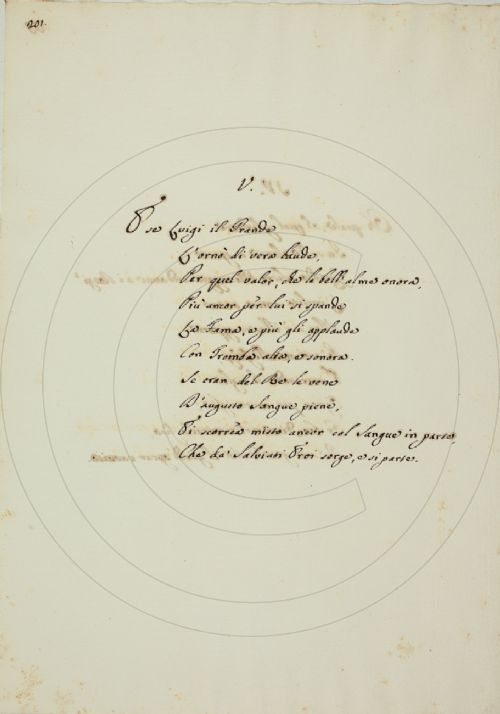 201.
V.
E se Luigi il Grande
L'ornò di vera laude,
Per quel valor, che le bell'alme onora,
Più ancor per lui si spande
La Fama, e più gli applaude
Con Tromba alta, e sonora.
Se eran del Re le vene
D'augusto Sangue piene,
Vi scorrea misto ancor col Sangue in parte,
Che da' Salviati Eroi sorge, e si parte.